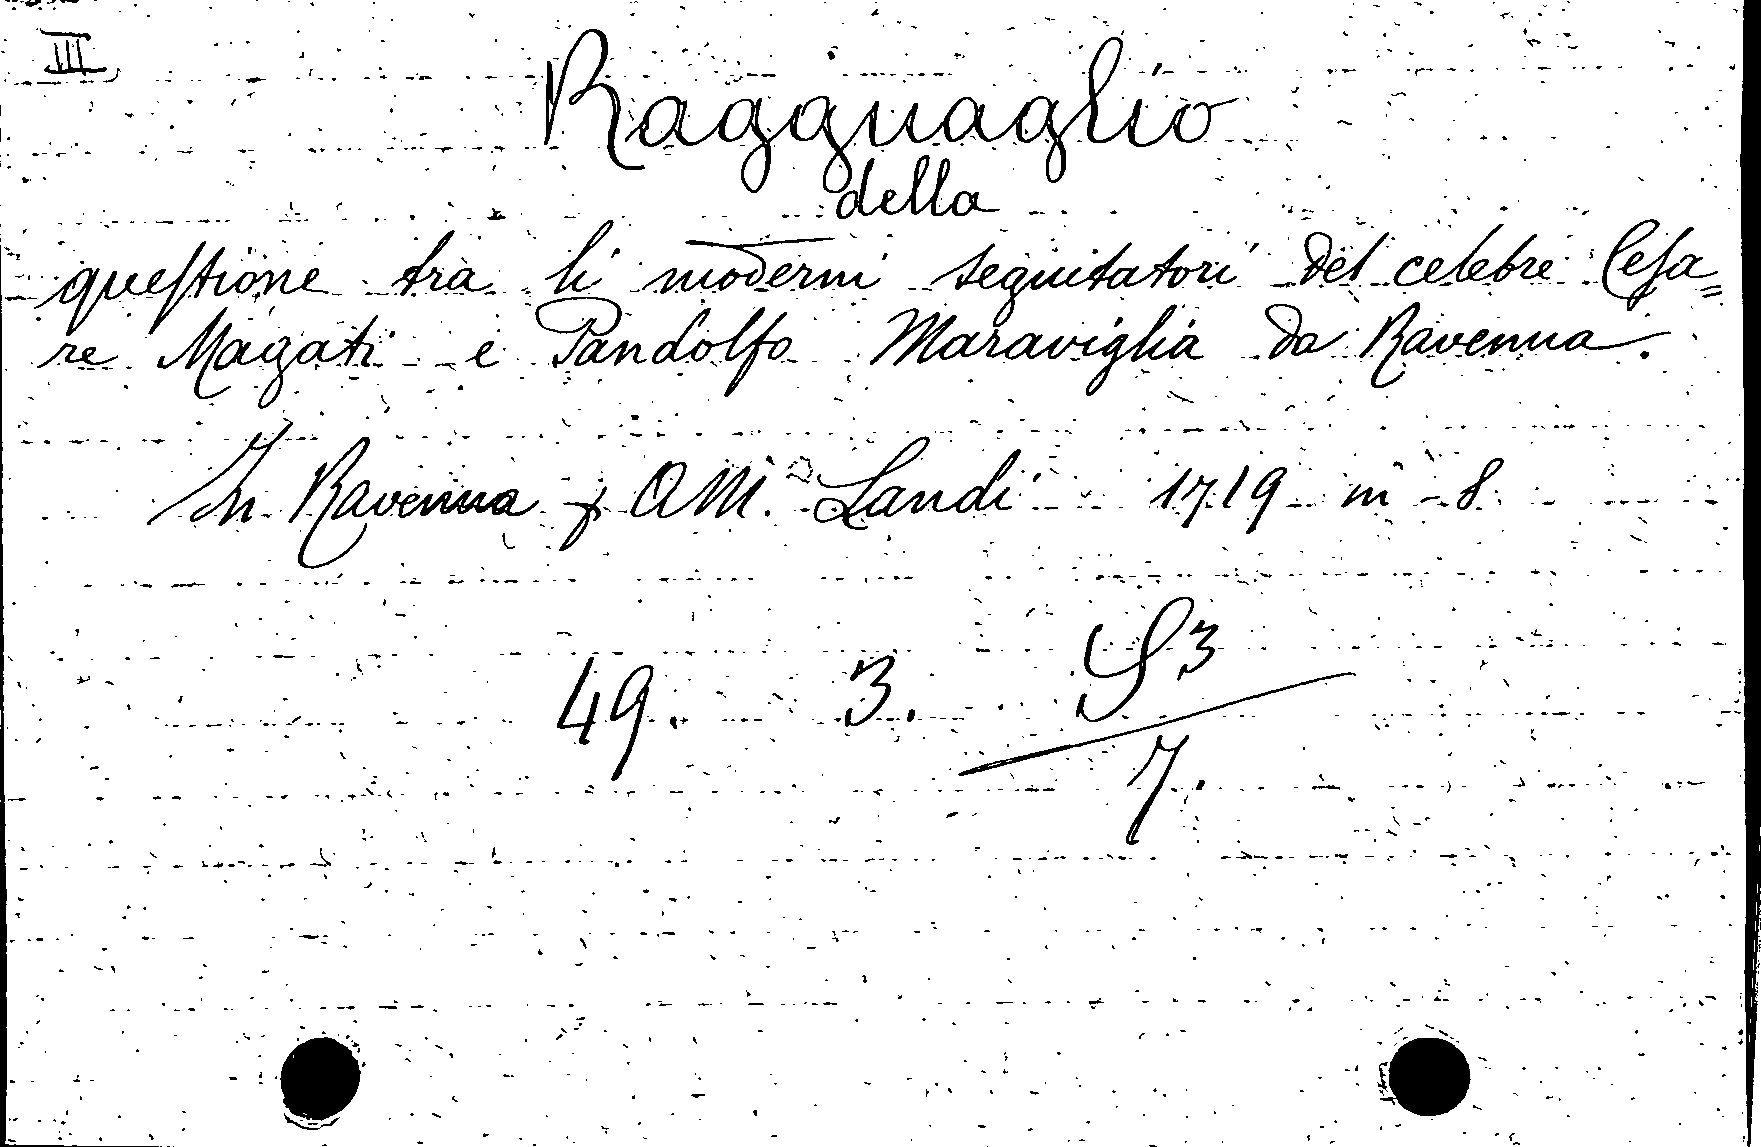 III
Ragguaglio
della
queſtione tra li moderni seguitatori del celebre Ceſa=
re Magati e Pandolfo Maraviglia da Ravenna.
In Ravenna p A M.ª Landi 1719 in 8.
49. 3. S3
7.